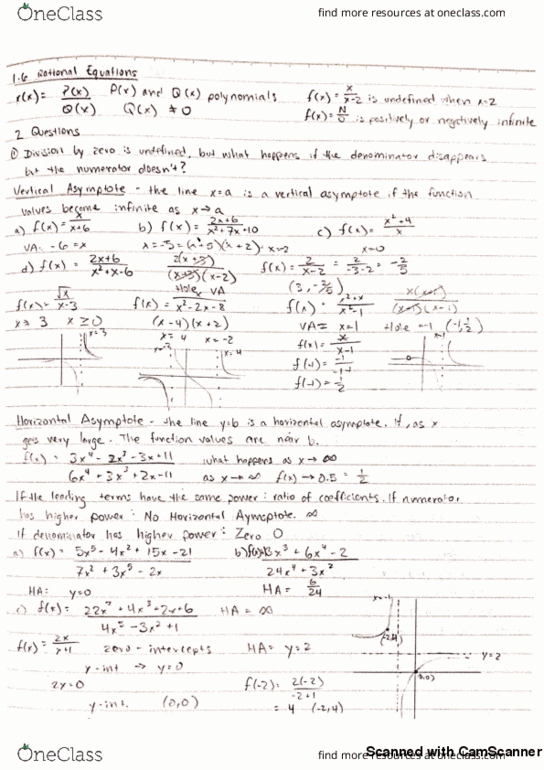 OneClass
find more resources at oneclass.com
1.6 Rational Equations
r(x) = P(x)/Q(x) P(x) and Q(x) polynomials Q(x) ≠ 0
f(x) = x/x-2 is undefined when x=2
f(x) = N/0 is positively or negatively infinite
2 Questions
① Division by zero is undefined, but what happens if the denominator disappears
but the numerator doesn't?
Vertical Asymptote - the line x=a is a vertical asymptote if the function
values become infinite as x → a
a) f(x) = x/x+6 b) f(x) = 2x+6/x²+7x+10 c) f(x) = x²+4/x
VA: -6 = x x = -5 = (x+5)(x+2) x=2 x=0
d) f(x) = 2x+6/x²+x-6 2(x+3)/(x+3)(x-2) f(x) = 2/x-2 = 2/-3-2 = -2/5
Hole VA (3, -2/5)
f(x) = √x/x-3 f(x) = /x²-2x-8 f(x) = x²+x/x²-1 x(x+1)/(x+1)(x-1)
x ≠ 3 x ≥ 0 (x-4)(x+2) VA = x=1 Hole -1 (-1, 1/2)
x = 4 x = -2 f(x) = x/x-1
x=3 x=4 f(-1) = -1/-1-1
f(-1) = 1/2
Horizontal Asymptote - the line y=b is a horizontal asymptote. If, as x
gets very large. The function values are near b.
f(x) = 3x⁴ - 2x² - 3x + 11/6x⁴ + 3x³ + 2x - 11 what happens as x → ∞
as x → ∞ f(x) → 0.5 = 1/2
If the leading terms have the same power: ratio of coefficients. If numerator
has higher power: No Horizontal Aymsptote. ∞
If denominator has higher power: Zero 0
a) f(x) = 5x⁵ - 4x² + 15x - 21/7x² + 3x⁵ - 2x b) f(x) 3x³ + 6x⁴ - 2/24x⁴ + 3x²
HA: y=0 HA = 6/24
c) f(x) = 22x⁷ + 4x³ + 2x + 6/4x⁵ - 3x² + 1 HA = ∞
f(x) = 2x/x+1 zero - intercepts HA = y = 2
y-int → y = 0 y = 2
2x = 0 f(-2) = 2(-2)/-2+1
y-int. (0,0) = 4 (-2,4)
(-2,4)
(0,0)
Scanned with CamScanner
OneClass
find more resources at oneclass.com